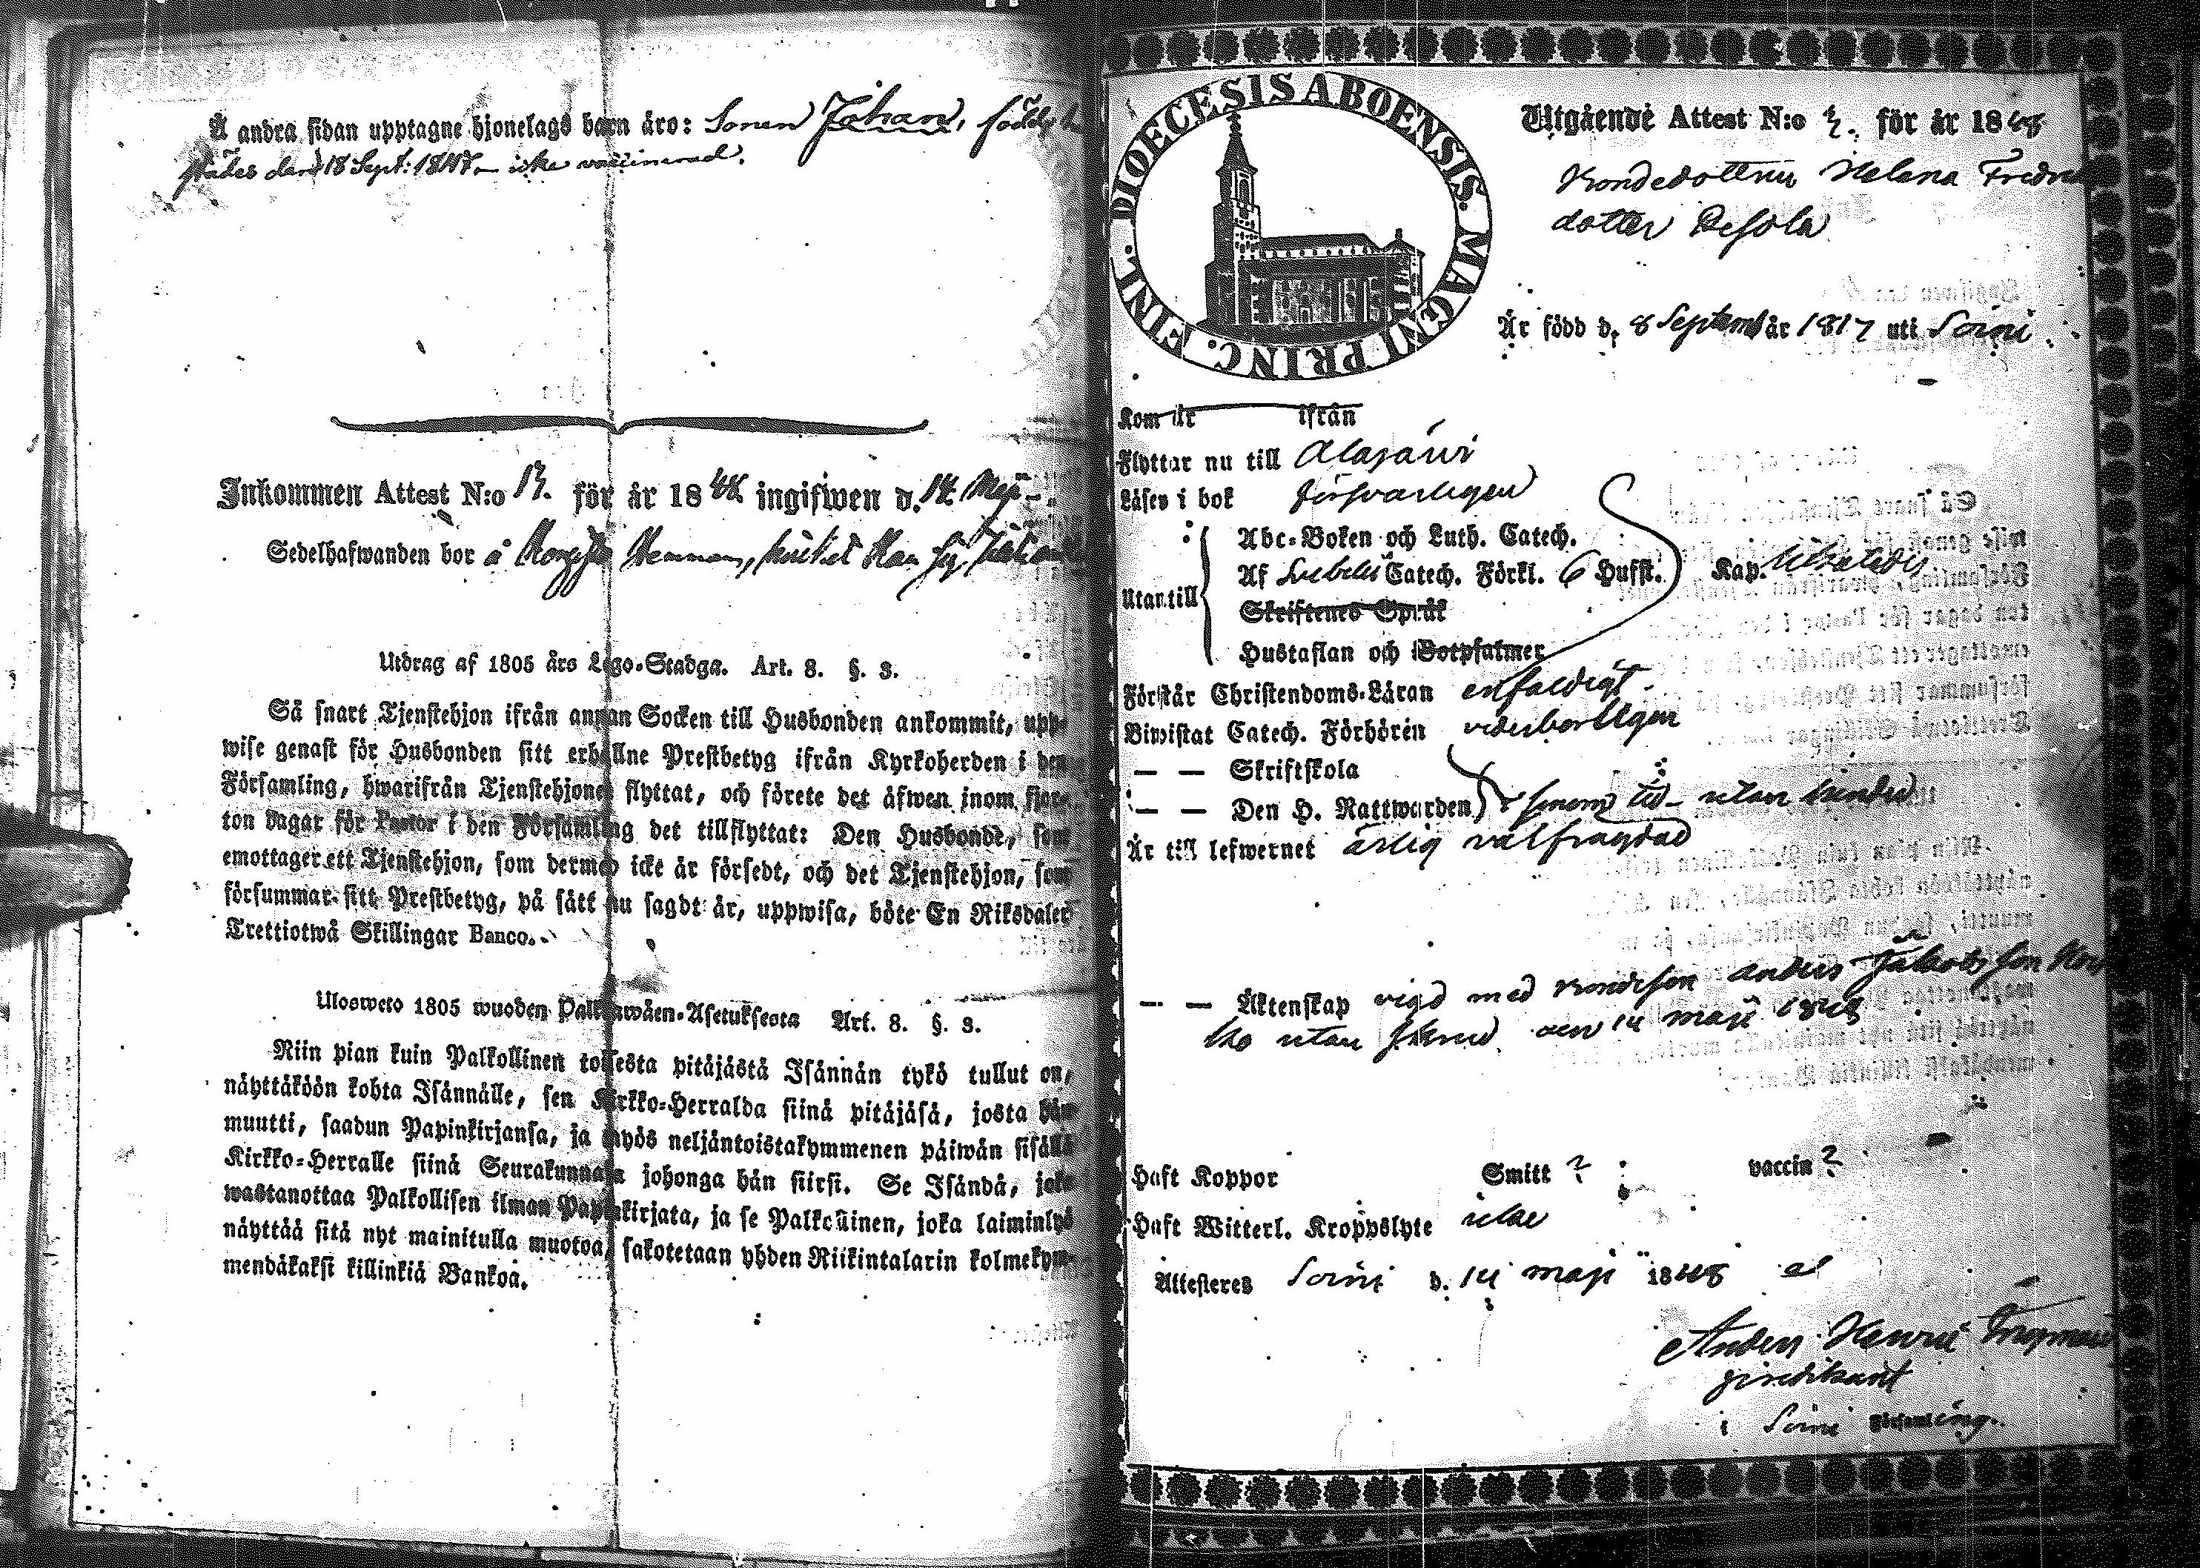 Å andra sidan upptagne hjonelags barn äro: Sonen Johan, född
städes den 18 Sept: 1847 – icke vaccinerad.
Inkommen Attest N:o 13. för år 1848 ingifwen d. 14 Maji
Sedelhafwanden bor å Hemman,
Utdrag af 1805 års Lego-Stadga. Art. 8. §. 3.
Så snart Tjenstehjon ifrån annan Socken till Husbonden ankommit, upp-
wise genast för Husbonden sitt erhållne Prestbetyg ifrån Kyrkoherden i den
Församling, hwarifrån Tjenstehjonet flyttat, och förete det äfwen inom fjor-
ton dagar för Pastor i den Församling det tillflyttat: Den Husbonde, som
emottager ett Tjenstehjon, som dermed icke är försedt, och det Tjenstehjon, som
försummar sitt Prestbetyg, på sätt nu sagdt är, uppwisa, böte En Riksdaler
Trettiotwå Skillingar Banco.
Ulosweto 1805 wuoden Palkkawäen-Asetuksesta Art. 8. §. 3.
Niin pian kuin Palkollinen toisesta pitäjästä Isännän tykö tullut on,
näyttäköön kohta Isännälle, sen Kirkko-Herralda siinä pitäjäsä, josta hän
muutti, saadun Papinkirjansa, ja myös neljäntoistakymmenen päiwän sisällä
Kirkko-Herralle siinä Seurakunnasa johonga hän siirsi. Se Isändä, joka
wastanottaa Palkollisen ilman Papinkirjata, ja se Palkollinen, joka laiminlyö
näyttää sitä nyt mainitulla muotoa, sakotetaan yhden Riikintalarin kolmekym-
mendäkaksi killinkiä Bankoa.
DIOECESIS ABOENSIS. MAGNI PRINC. FINL.
Utgående Attest N:o för år 1848
Bondedottren Helena Fredriks
dotter
Är född d. 8 Septemb år 1817 uti Soini
Kom år ifrån
Flyttar nu till Alajärvi
Läser i bok försvarligen
Utantill
Abc-Boken och Luth. Catech.
Af Svebelii Catech. Förkl. 6 Hufst. Kap.
Skriftenes Språk
Hustaflan och Botpsalmer
Förstår Christendoms-Läran enfaldigt.
Biwistat Catech. Förhören vederbörligen
— — Skriftskola
— — Den H. Nattwarden i sinom tid – utan hinder
Är till lefwernet ärlig välfrägdad
— — Äktenskap vigd med Bondeson Anders Jakobsson
utan den 14 maji 1848
Haft Koppor Smitt ? vaccin ?
Haft Witterl. Kroppslyte icke
Attesteres Soini d. 14 maji 1848 af
Anders Henric
predikant
i Soini Församling.